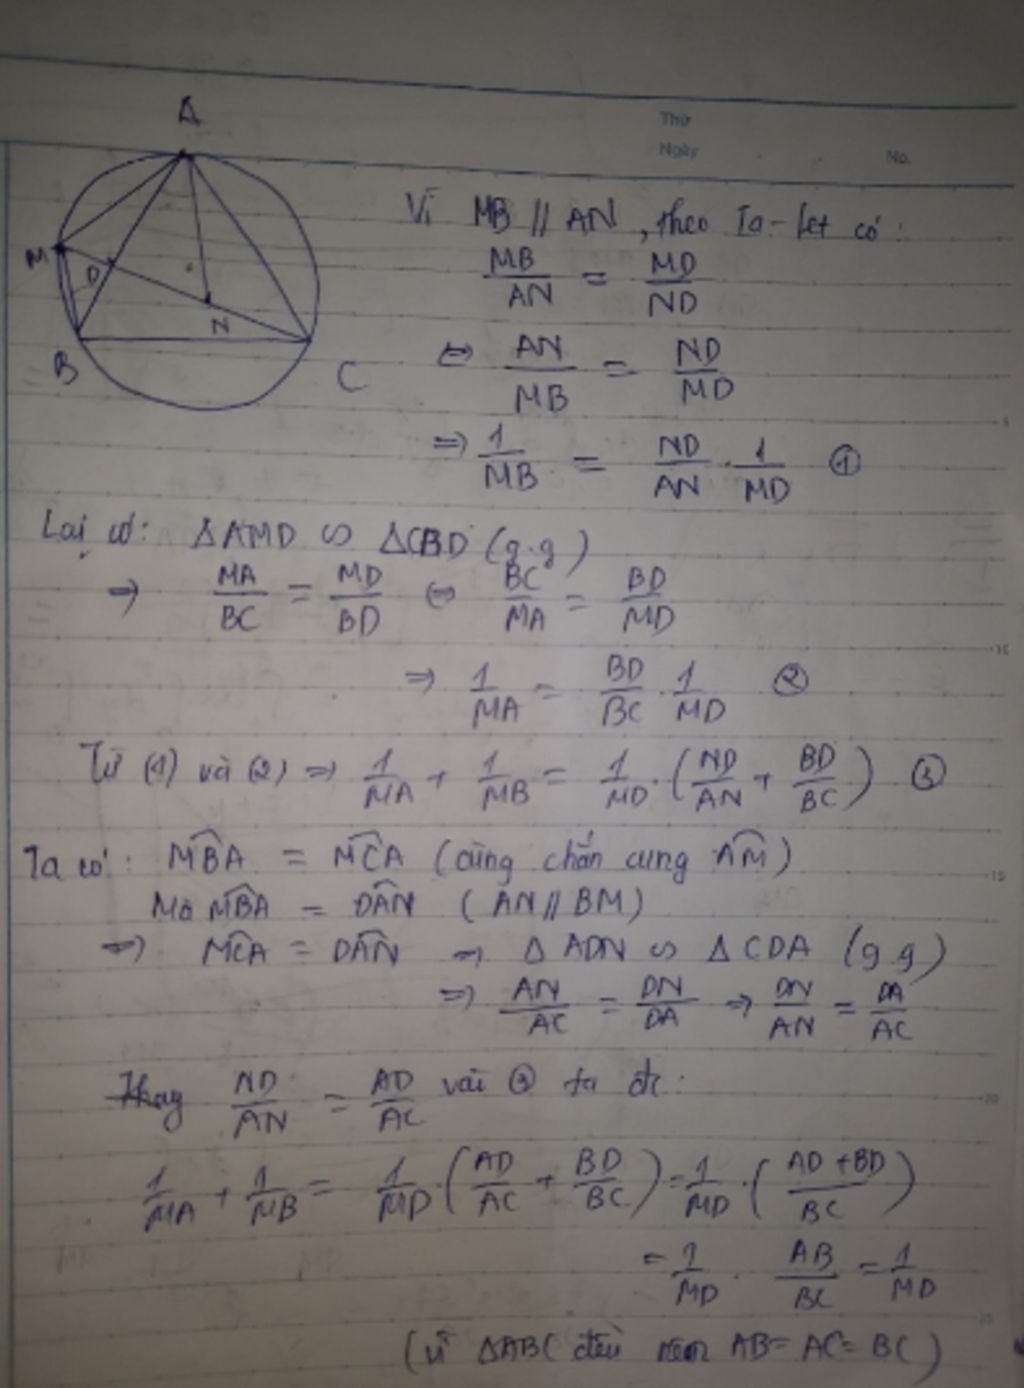 Thứ
Ngày
No.
A
M
D
N
B
C
Vì MB // AN, theo Ta-let có:
MB/AN = MD/ND
⇔ AN/MB = ND/MD
⇒ 1/MB = ND/AN . 1/MD ①
Lại có: ΔAMD ∽ ΔCBD (g.g)
⇒ MA/BC = MD/BD ⇔ BC/MA = BD/MD
⇒ 1/MA = BD/BC . 1/MD ②
Từ (1) và (2) ⇒ 1/MA + 1/MB = 1/MD . (ND/AN + BD/BC) ③
Ta có: MBA = MCA (cùng chắn cung AM)
Mà MBA = DAN (AN // BM)
⇒ MCA = DAN ⇒ ΔADN ∽ ΔCDA (g.g)
⇒ AN/AC = DN/DA ⇒ DN/AN = DA/AC
Thay ND/AN = AD/AC vào ③ ta đc:
1/MA + 1/MB = 1/MD . (AD/AC + BD/BC) = 1/MD . (AD + BD/BC)
= 1/MD . AB/BC = 1/MD
(vì ΔABC đều nên AB = AC = BC)
5
10
15
20
25